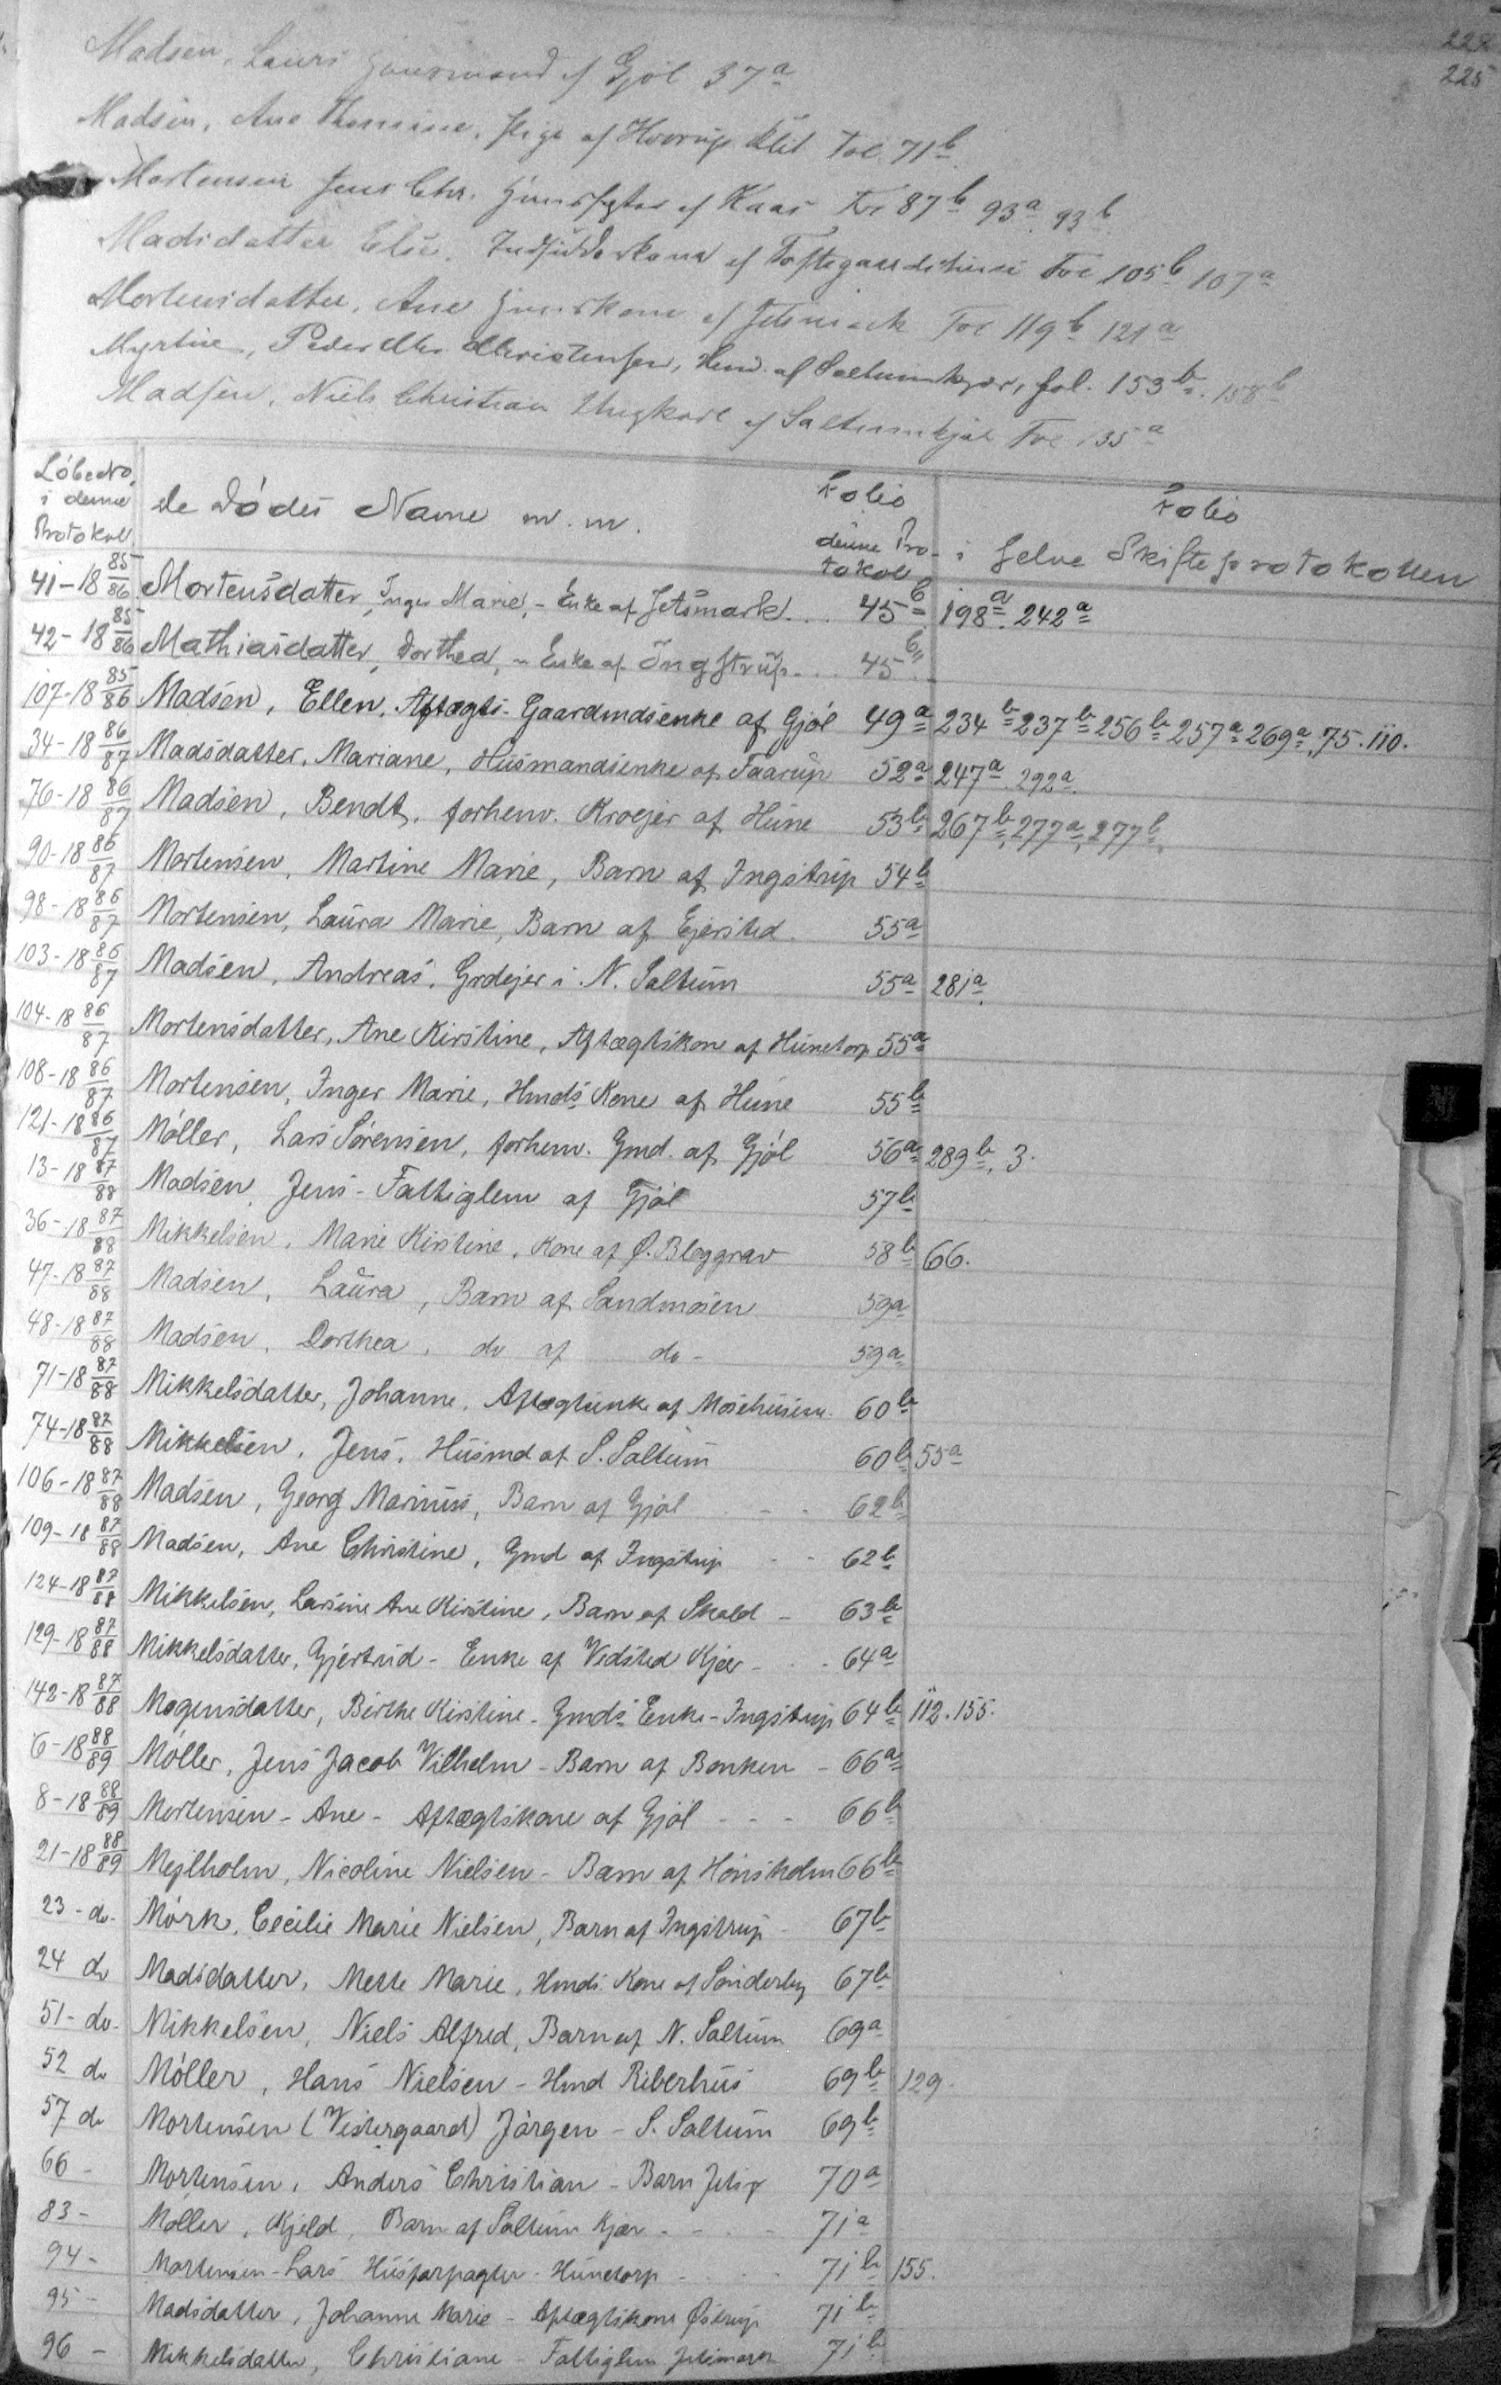 225
Madsen, Laurs Huusmand af Gjöl 37a
Madsen, Ane Thomine, Pige af Hvorup Klit Fol 71b
Mortensen Jens Chr. af Kaas Fol 87b 93a 93b
Madsdatter Else, af Toftegaardshuse Fol 105b 107a
Mortensdatter, Ane Huuskone af Jetsmark Fol 119b 121a
Myrtue, Peder Chr. Christensen, Hmd. af Saltumkjær, fol. 153b. 158b
Madsen, Niels Christian Ungkarl af Saltumkjær Fol 135a
Löbe No. i denne Protokol | De Dödes Navne m. m. | Folio denne Protokol | Folio i selve Skifteprotokollen
41-18 85/86 Mortensdatter, Inger Marie, - Enke af Jetsmark... 45b 198a. 242a
42-18 85/86 Mathiasdatter, Dorthea, - Enke af Ingstrup... 45b
107-18 85/86 Madsen, Ellen, Aftægts-Gaardmdsenke af Gjöl 49a 234b 237b 256b 257a 269a, 75. 110.
34-18 86/87 Madsdatter, Mariane, Husmandsenke af Faarup 52a 247a. 292a.
76-18 86/87 Madsen, Bendt, forhenv. Kroejer af Hune 53b 267b, 277a, 277b.
90-18 86/87 Mortensen, Martine Marie, Barn af Ingstrup 54b
98-18 86/87 Mortensen, Laura Marie, Barn af Ejersted. 55a
103-18 86/87 Madsen, Andreas, Grdejer i N. Saltum 55a 281a.
104-18 86/87 Mortensdatter, Ane Kirstine, Aftægtskone af Hunetorp 55a
108-18 86/87 Mortensen, Inger Marie, Hmds Kone af Hune 55b
121-18 86/87 Möller, Lars Sörensen, forhenv. Gmd. af Gjöl 56a 289b. 3.
13-18 87/88 Madsen, Jens - Fattiglem af Gjöl 57b
36-18 87/88 Mikkelsen, Marie Kirstine, Kone af Ø. Bleggrav 58b 66.
47-18 87/88 Madsen, Laura, Barn af Sandmosen 59a
48-18 87/88 Madsen, Dorthea, do af do - 59a
71-18 87/88 Mikkelsdatter, Johanne, Aftægtsenke af Mosehusene. 60b
74-18 87/88 Mikkelsen, Jens, Husmd af S. Saltum 60b 55a
106-18 87/88 Madsen, Georg Marinus, Barn af Gjöl - - 62b
109-18 87/88 Madsen, Ane Christine, Gmd af Ingstrup - - 62b
124-18 87/88 Mikkelsen, Larsine Ane Kirstine, Barn af Skald - 63b
129-18 87/88 Mikkelsdatter, Gjertrud - Enke af Vedsted Kjær - - 64a
142-18 87/88 Mogensdatter, Birthe Kirstine - Gmds Enke - Ingstrup 64b 112. 155.
6-18 88/89 Möller, Jens Jacob Vilhelm - Barn af Bonken - 66a
8-18 88/89 Mortensen - Ane - Aftægtskone af Gjöl - - - 66b
21-18 88/89 Mejlholm, Nicoline Nielsen - Barn af Hönsholm 66b
23 - do - Mörk, Cecilie Marie Nielsen, Barn af Ingstrup - 67b
24 do Madsdatter, Mette Marie, Hmds Kone af Sönderby 67b
51 - do - Mikkelsen, Niels Alfred, Barn af N. Saltum 69a
52 do Möller, Hans Nielsen - Hmd Riberhus 69b 129.
57 do Mortensen (Vestergaard) Jörgen - S. Saltum 69b
66 - Mortensen, Anders Christian - Barn 70a
83 - Möller, Kjeld, Barn af Saltum Kjær - - - - 71a
94 - Mortensen - Lars Husforpagter - Hunetorp - - - 71b 155.
95 - Madsdatter, Johanne Marie - Aftægtskone Østrup 71b
96 - Mikkelsdatter, Christiane - Fattiglem Jetsmark 71b